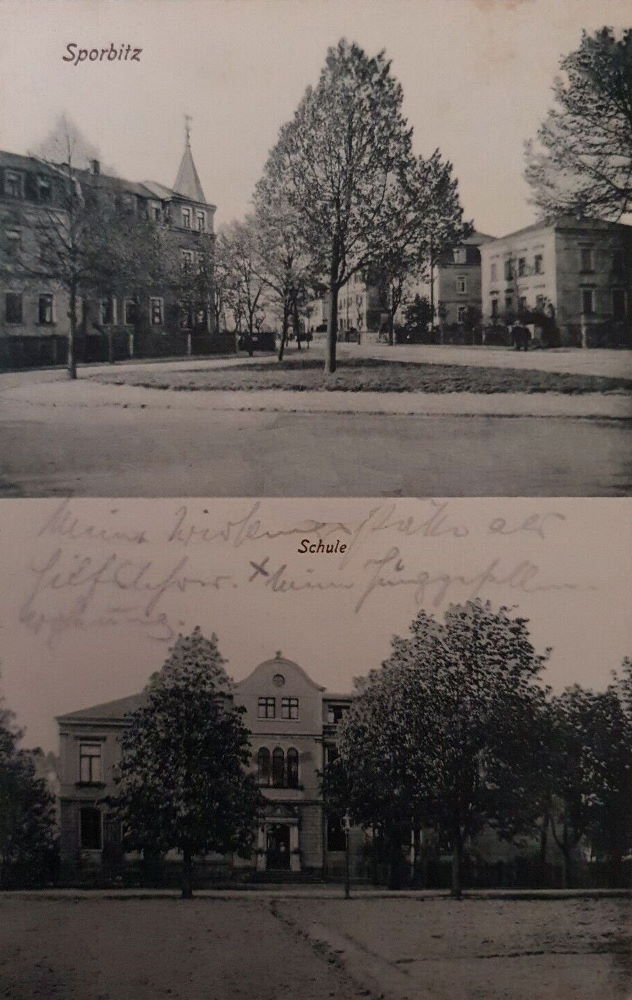 Sporbitz
Meine Wirkungsstätte als
Schule
Hilfslehrer. x Meine Junggesellen-
wohnung.